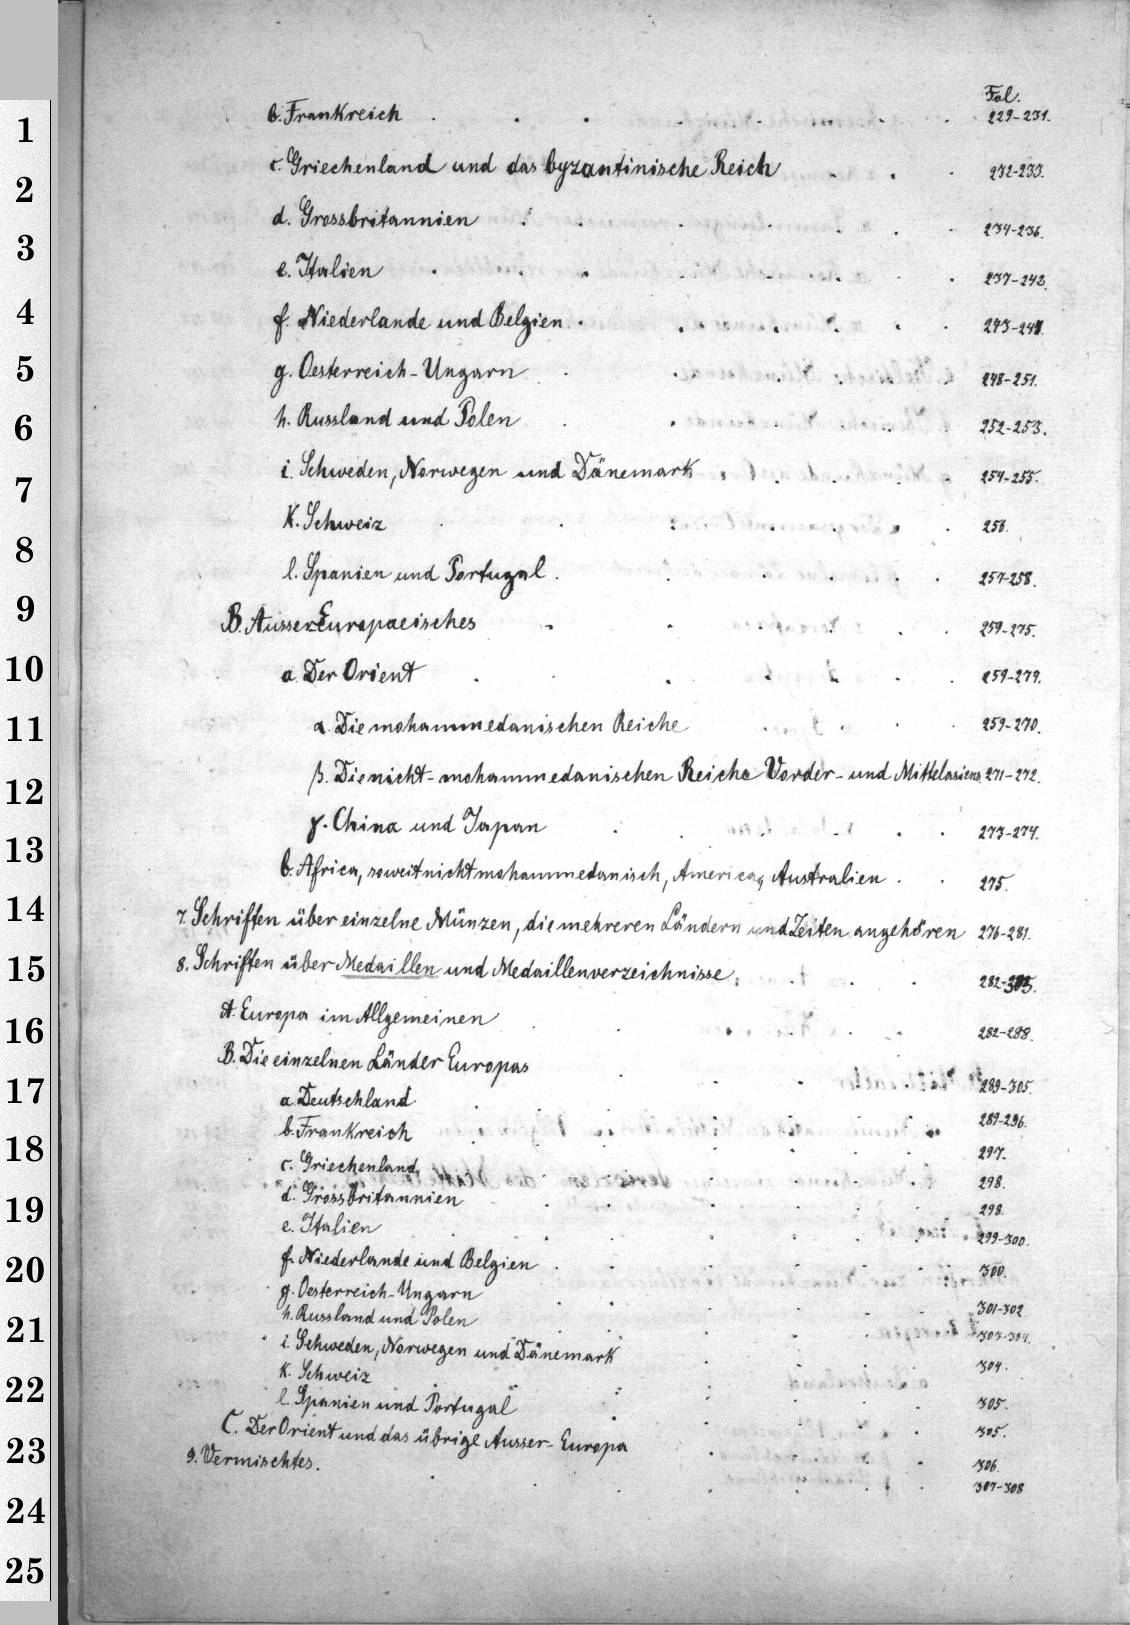 Fol.
b. Frankreich 229-231.
c. Griechenland und das byzantinische Reich 232-233.
d. Grossbritannien 234-236.
e. Italien 237-242.
f. Niederlande und Belgien 243-247.
g. Oesterreich-Ungarn 248-251.
h. Russland und Polen 252-253.
i. Schweden, Norwegen und Dänemark 254-255.
k. Schweiz 256.
l. Spanien und Portugal 257-258.
B. AusserEuropaeisches 259-275.
a. Der Orient 259-279.
α. Die mohammedanischen Reiche 259-270.
β. Die nicht-mohammedanischen Reiche Vorder- und Mittelasiens 271-272.
γ. China und Japan 273-274.
b. Africa, soweit nicht mohammedanisch, America, Australien 275.
7. Schriften über einzelne Münzen, die mehreren Ländern und Zeiten angehören 276-281.
8. Schriften über Medaillen und Medaillenverzeichnisse 282-305.
A. Europa im Allgemeinen 282-288.
B. Die einzelnen Länder Europas 289-305.
a. Deutschland 289-296.
b. Frankreich 297.
c. Griechenland 298.
d. Grossbritannien 298.
e. Italien 299-300.
f. Niederlande und Belgien 300.
g. Oesterreich-Ungarn 301-302.
h. Russland und Polen 303-304.
i. Schweden, Norwegen und Dänemark 304.
k. Schweiz 305.
l. Spanien und Portugal 305.
C. Der Orient und das übrige Ausser-Europa 306.
9. Vermischtes. 307-308
1
2
3
4
5
6
7
8
9
10
11
12
13
14
15
16
17
18
19
20
21
22
23
24
25